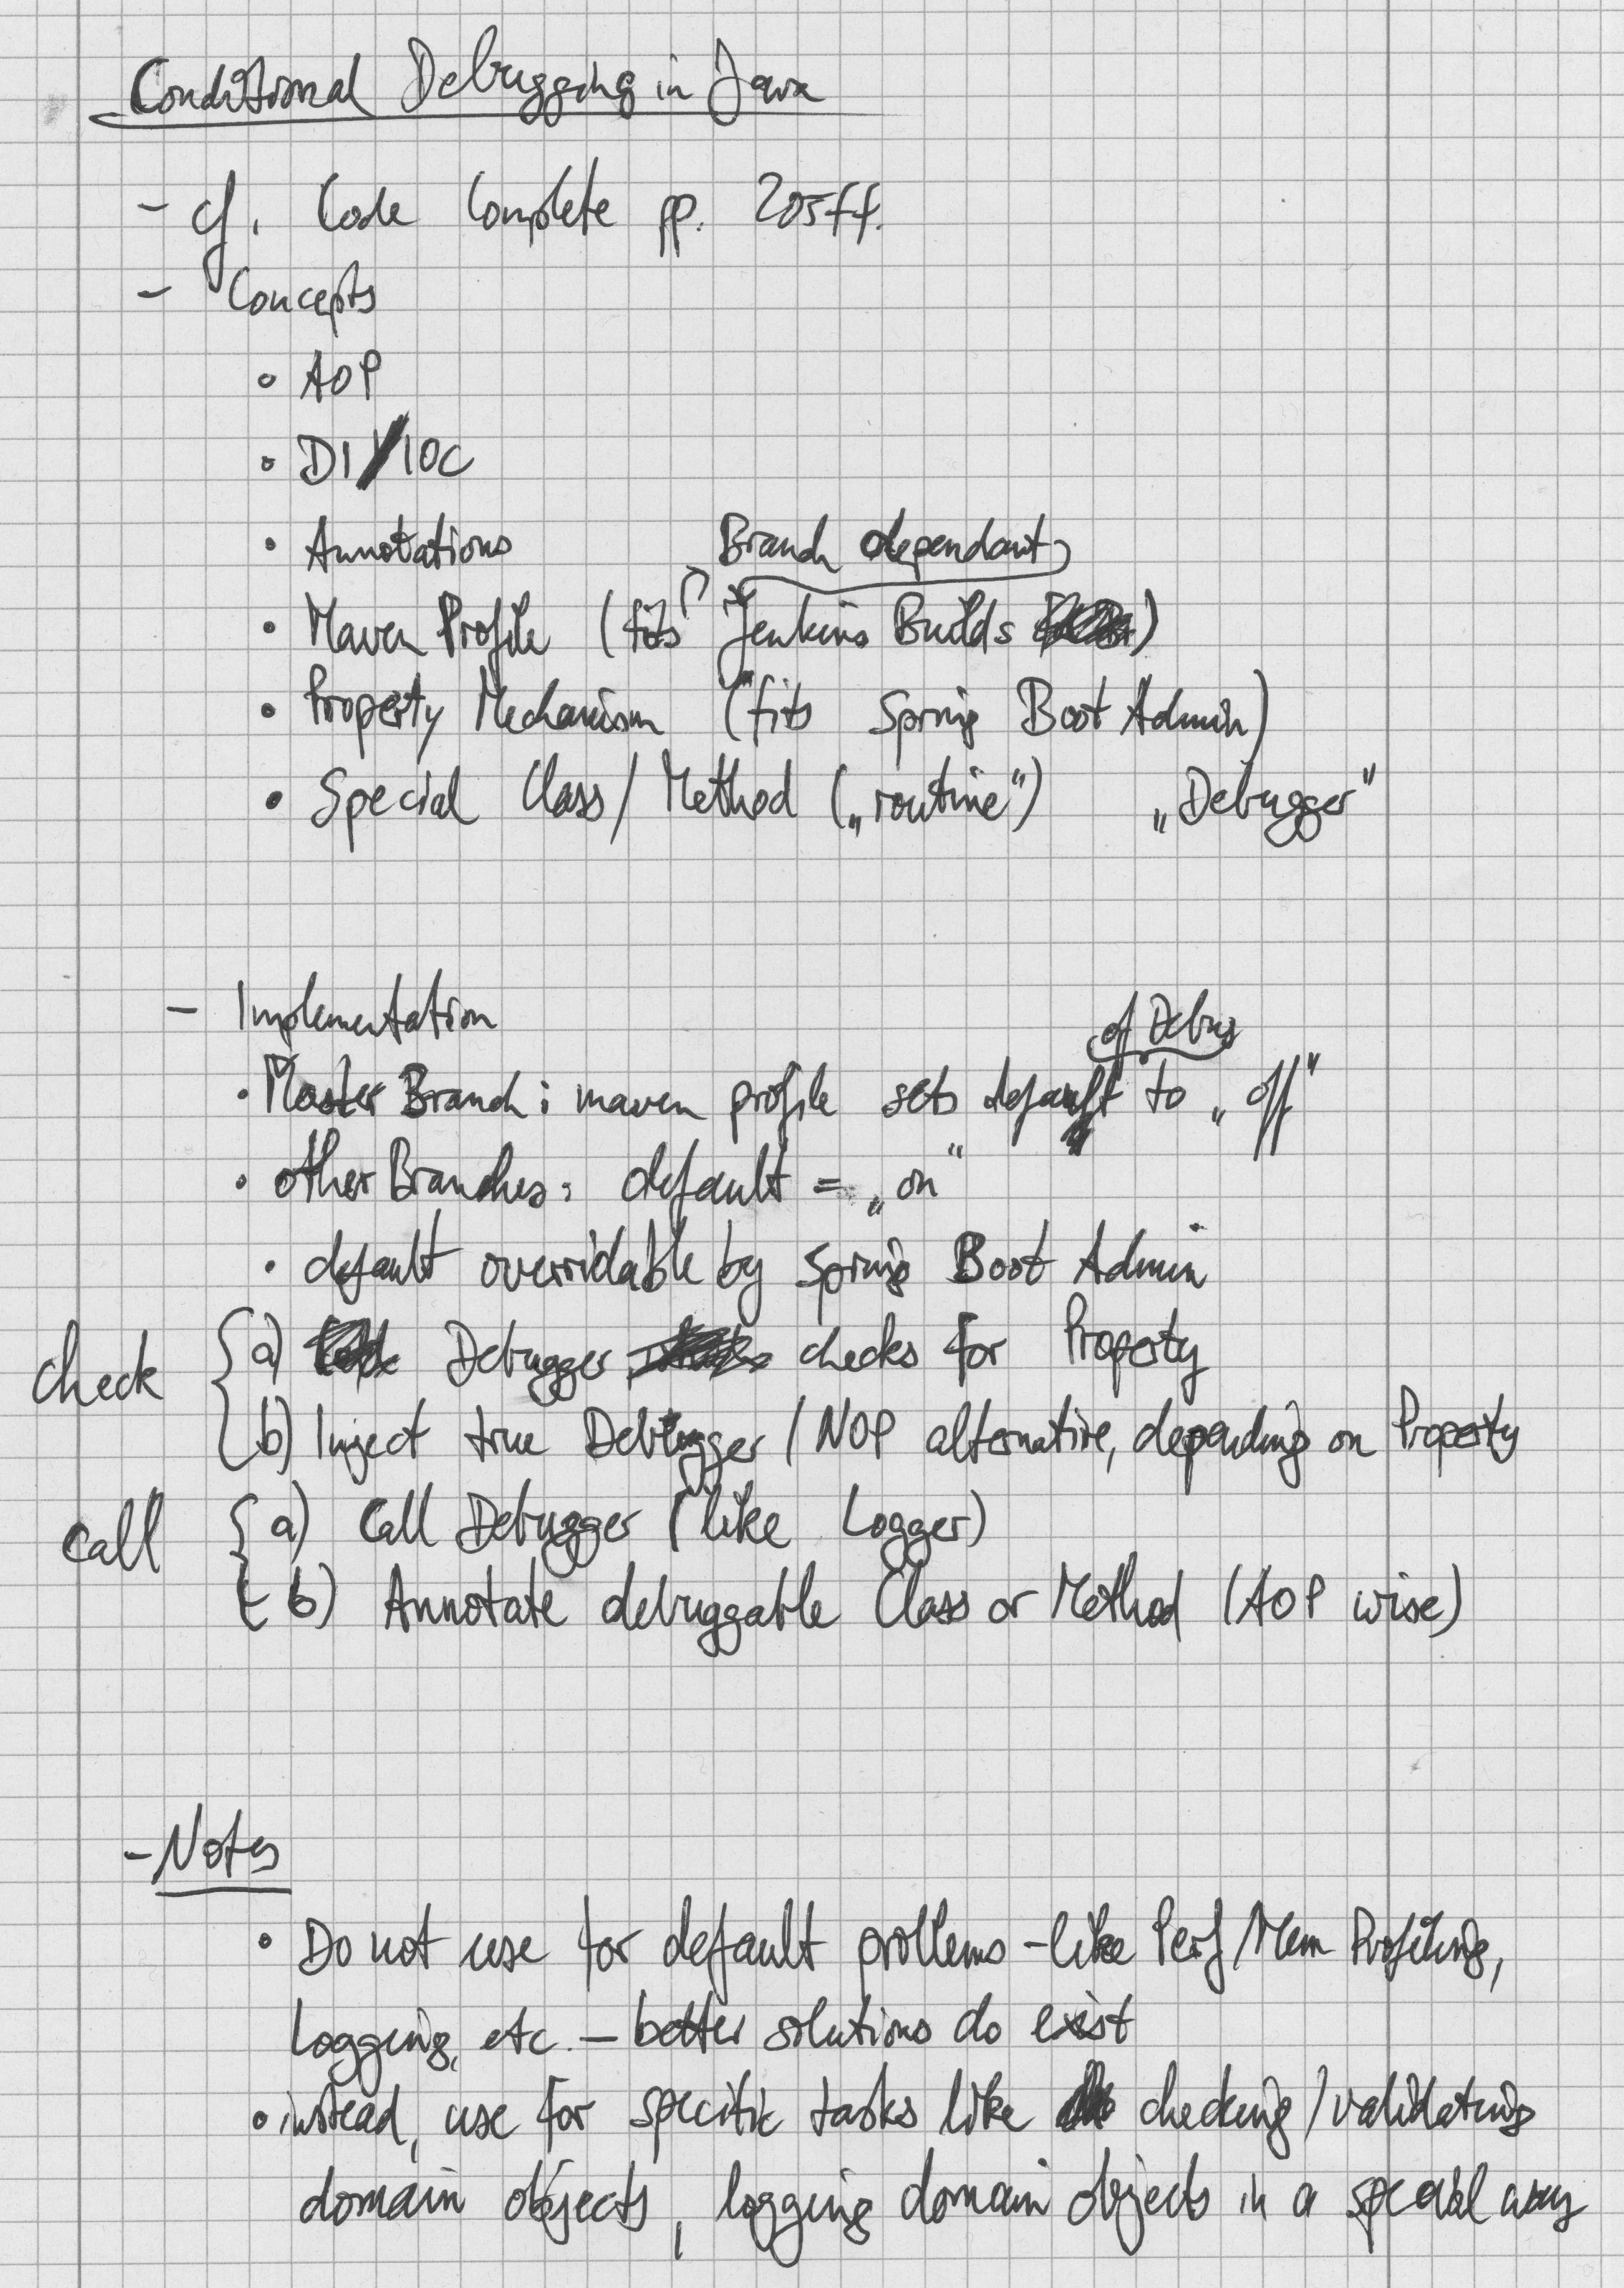 Conditional Debugging in Java
- cf. Code Complete pp. 205ff.
- Concepts
• AOP
• DI/IOC
• Annotations
Branch dependant
• Maven Profile (fits Jenkins Builds)
• Property Mechanism (fits Spring Boot Admin)
• Special Class/Method („routine“) „Debugger“
- Implementation
of Debug
• Master Branch: maven profile sets default to „off“
• other Branches: default = „on“
• default overridable by Spring Boot Admin
check { a) Debugger checks for Property
b) Inject true Debugger / NOP alternative, depending on Property
call { a) Call Debugger (like Logger)
b) Annotate debuggable Class or Method (AOP wise)
- Notes
• Do not use for default problems - like Perf/Mem Profiling,
Logging, etc. — better solutions do exist
• instead, use for specific tasks like checking/validating
domain objects, logging domain objects in a special way